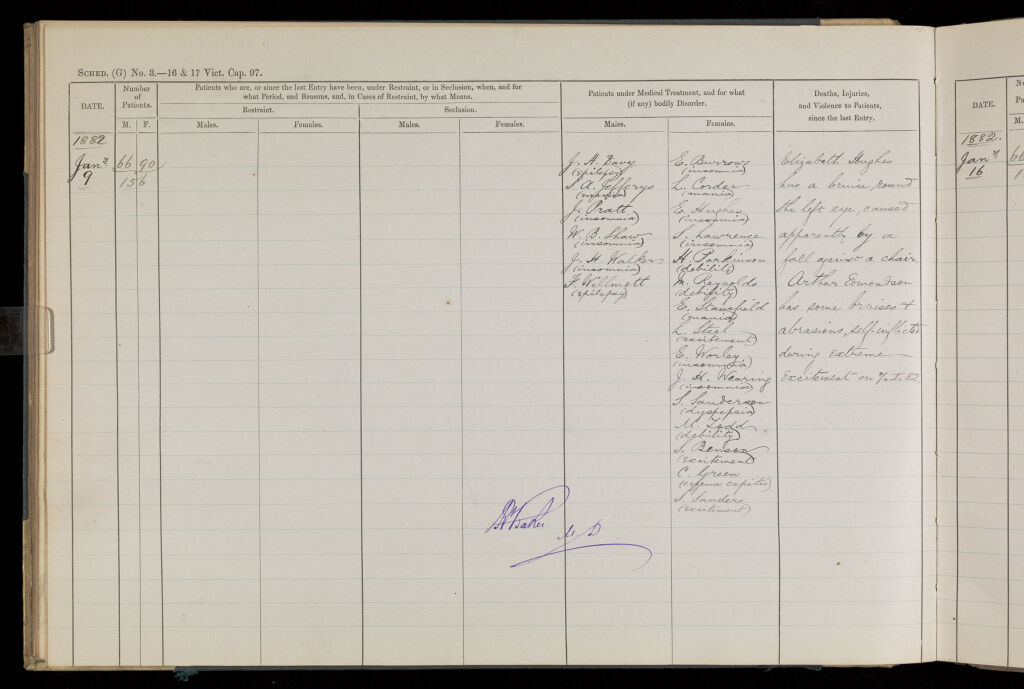 SCHED. (G) No. 3.—16 & 17 Vict. Cap. 97.
DATE.
Number
of
Patients.
M. F.
Patients who are, or since the last Entry have been, under Restraint, or in Seclusion, when, and for
what Period, and Reasons, and, in Cases of Restraint, by what Means.
Restraint.
Seclusion.
Males.
Females.
Males.
Females.
Patients under Medical Treatment, and for what
(if any) bodily Disorder.
Males.
Females.
Deaths, Injuries,
and Violence to Patients,
since the last Entry.
1882
Jany
9
66 90
156
J. H. Davy
(epilepsy)
S. A. Jefferys
(mania)
J. Pratt
(insomnia)
W. B. Shaw
(insomnia)
J. H. Walkers
(insomnia)
F. Willmott
(epilepsy)
E. Burrows
(insomnia)
L. Corder
(mania)
E. Hughes
(insomnia)
S. Lawrence
(insomnia)
H. Parkinson
(debility)
M. Reynolds
(debility)
E. Stansfield
(mania)
L. Steel
(excitement)
E. Worley
(insomnia)
J. H. Wearing
(insomnia)
S. Sanderson
(dyspepsia)
M. Todd
(debility)
S. Benson
(excitement)
C. Green
(eczema capitis)
S. Sanders
(excitement)
Elizabeth Hughes
has a bruise round
the left eye, caused
apparently by a
fall against a chair.
Arthur Edmondson
has some bruises &
abrasions, self-inflicted
during extreme
excitement on I. 82
Baker
M.D
DATE.
1882.
Jany
16
M.